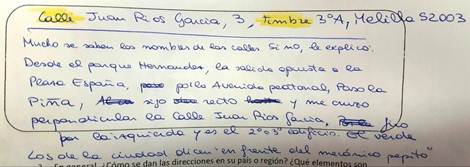 Calle Juan Rios Garcia, 3, timbre 3ºA, Melilla 52003
Mucho se saben los nombres de las calles. Si no, le explico:
Desde el parque Hernandez, la salida opuesta a la
Plaza España, por la Avenida peatonal, Paso la
Piña, sijo recto y me cruzo
perpendicular la Calle Juan Rios Garcia,
por la izquierda y es el 2º o 3º edificio. verde
Los de la ciudad dicen "en frente del mecánico pepito"
En general, ¿Cómo se dan las direcciones en su país o región? ¿Qué elementos son